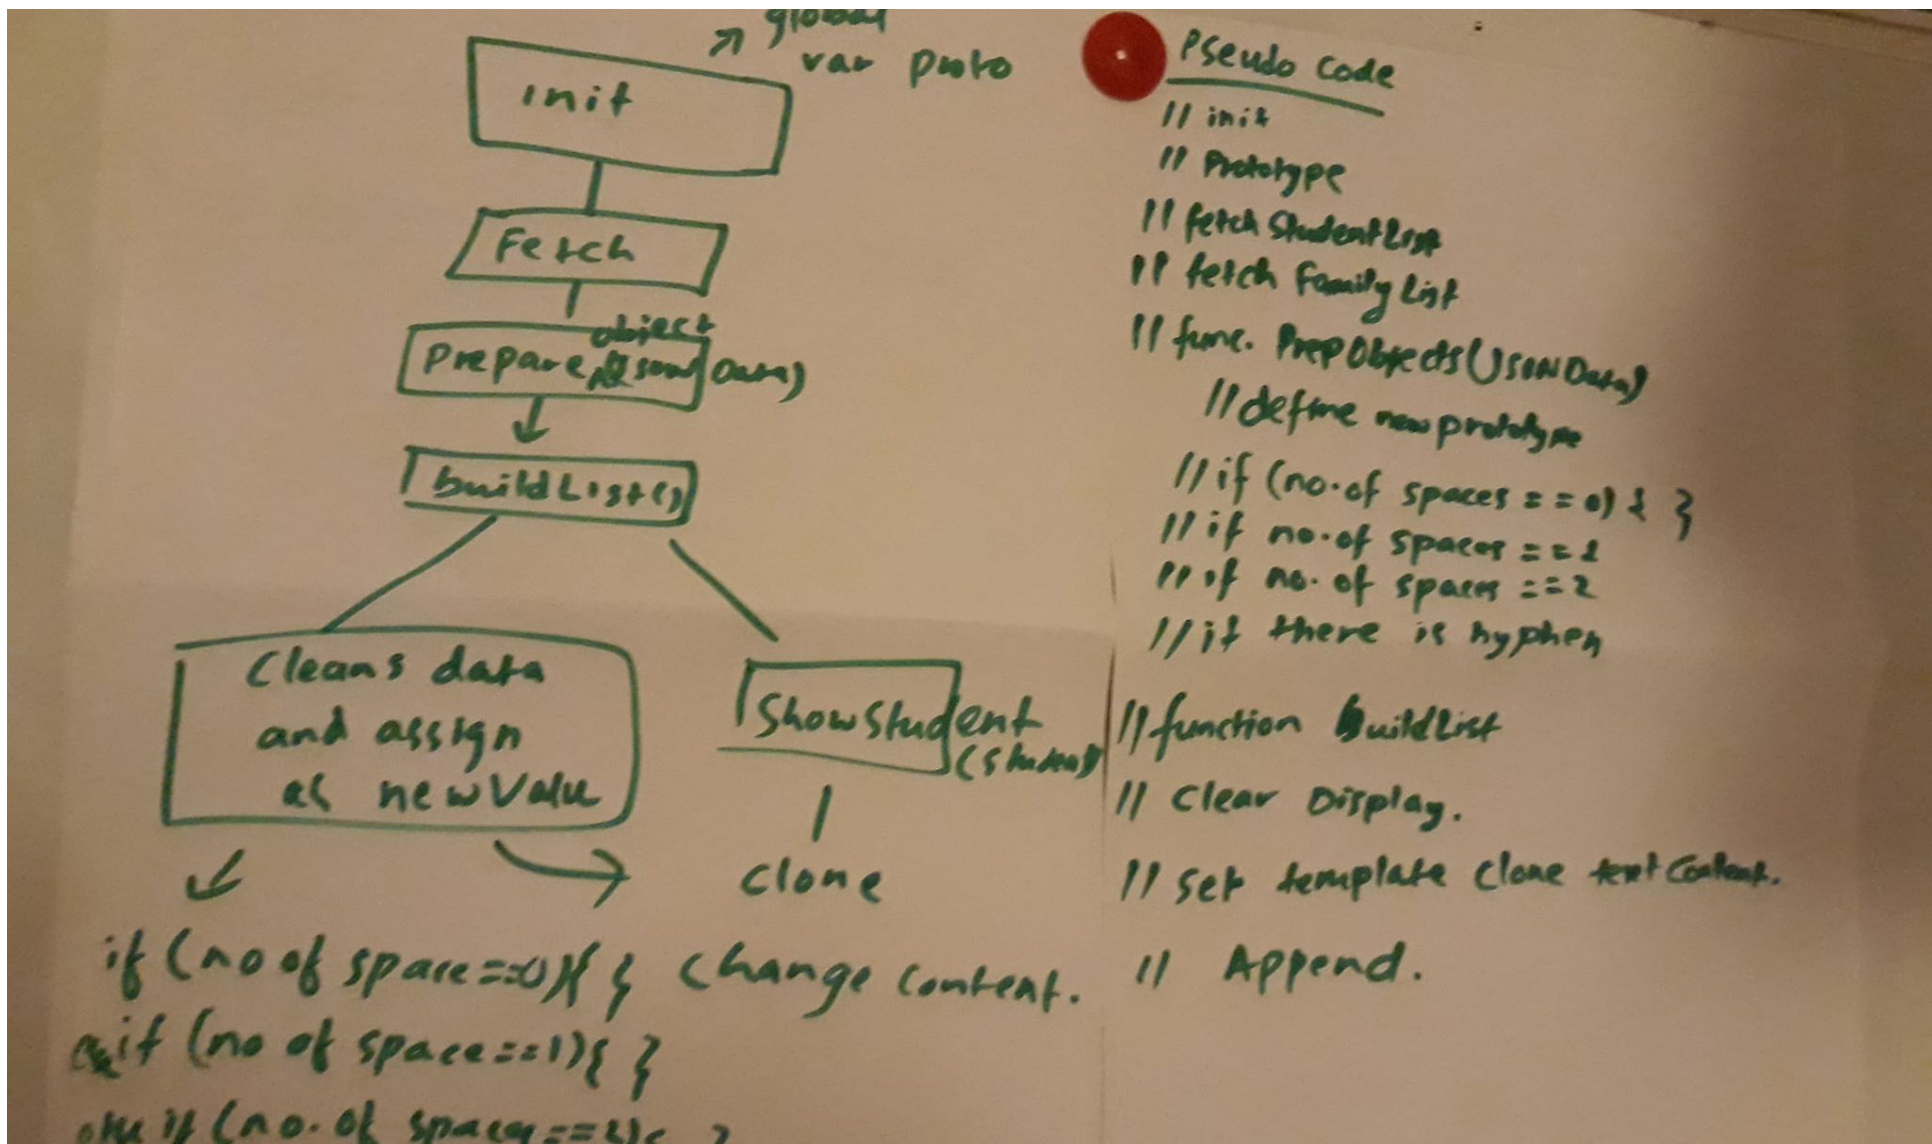 global
var proto
init
Fetch
object
Prepare (JSON Data)
buildList()
Cleans data
and assign
as newValue
ShowStudent
(student)
clone
if (no of space==0){ } change content.
if (no of space==1){ }
else if (no. of spaces==2){ }
Pseudo Code
// init
// Prototype
// fetch StudentList
// fetch Family List
// func. PrepObjects(JSON Data)
// define new prototype
// if (no. of spaces == 0) { }
// if no. of spaces == 1
// if no. of spaces == 2
// if there is hyphen
// function buildList
// Clear Display.
// set template clone textContent.
// Append.